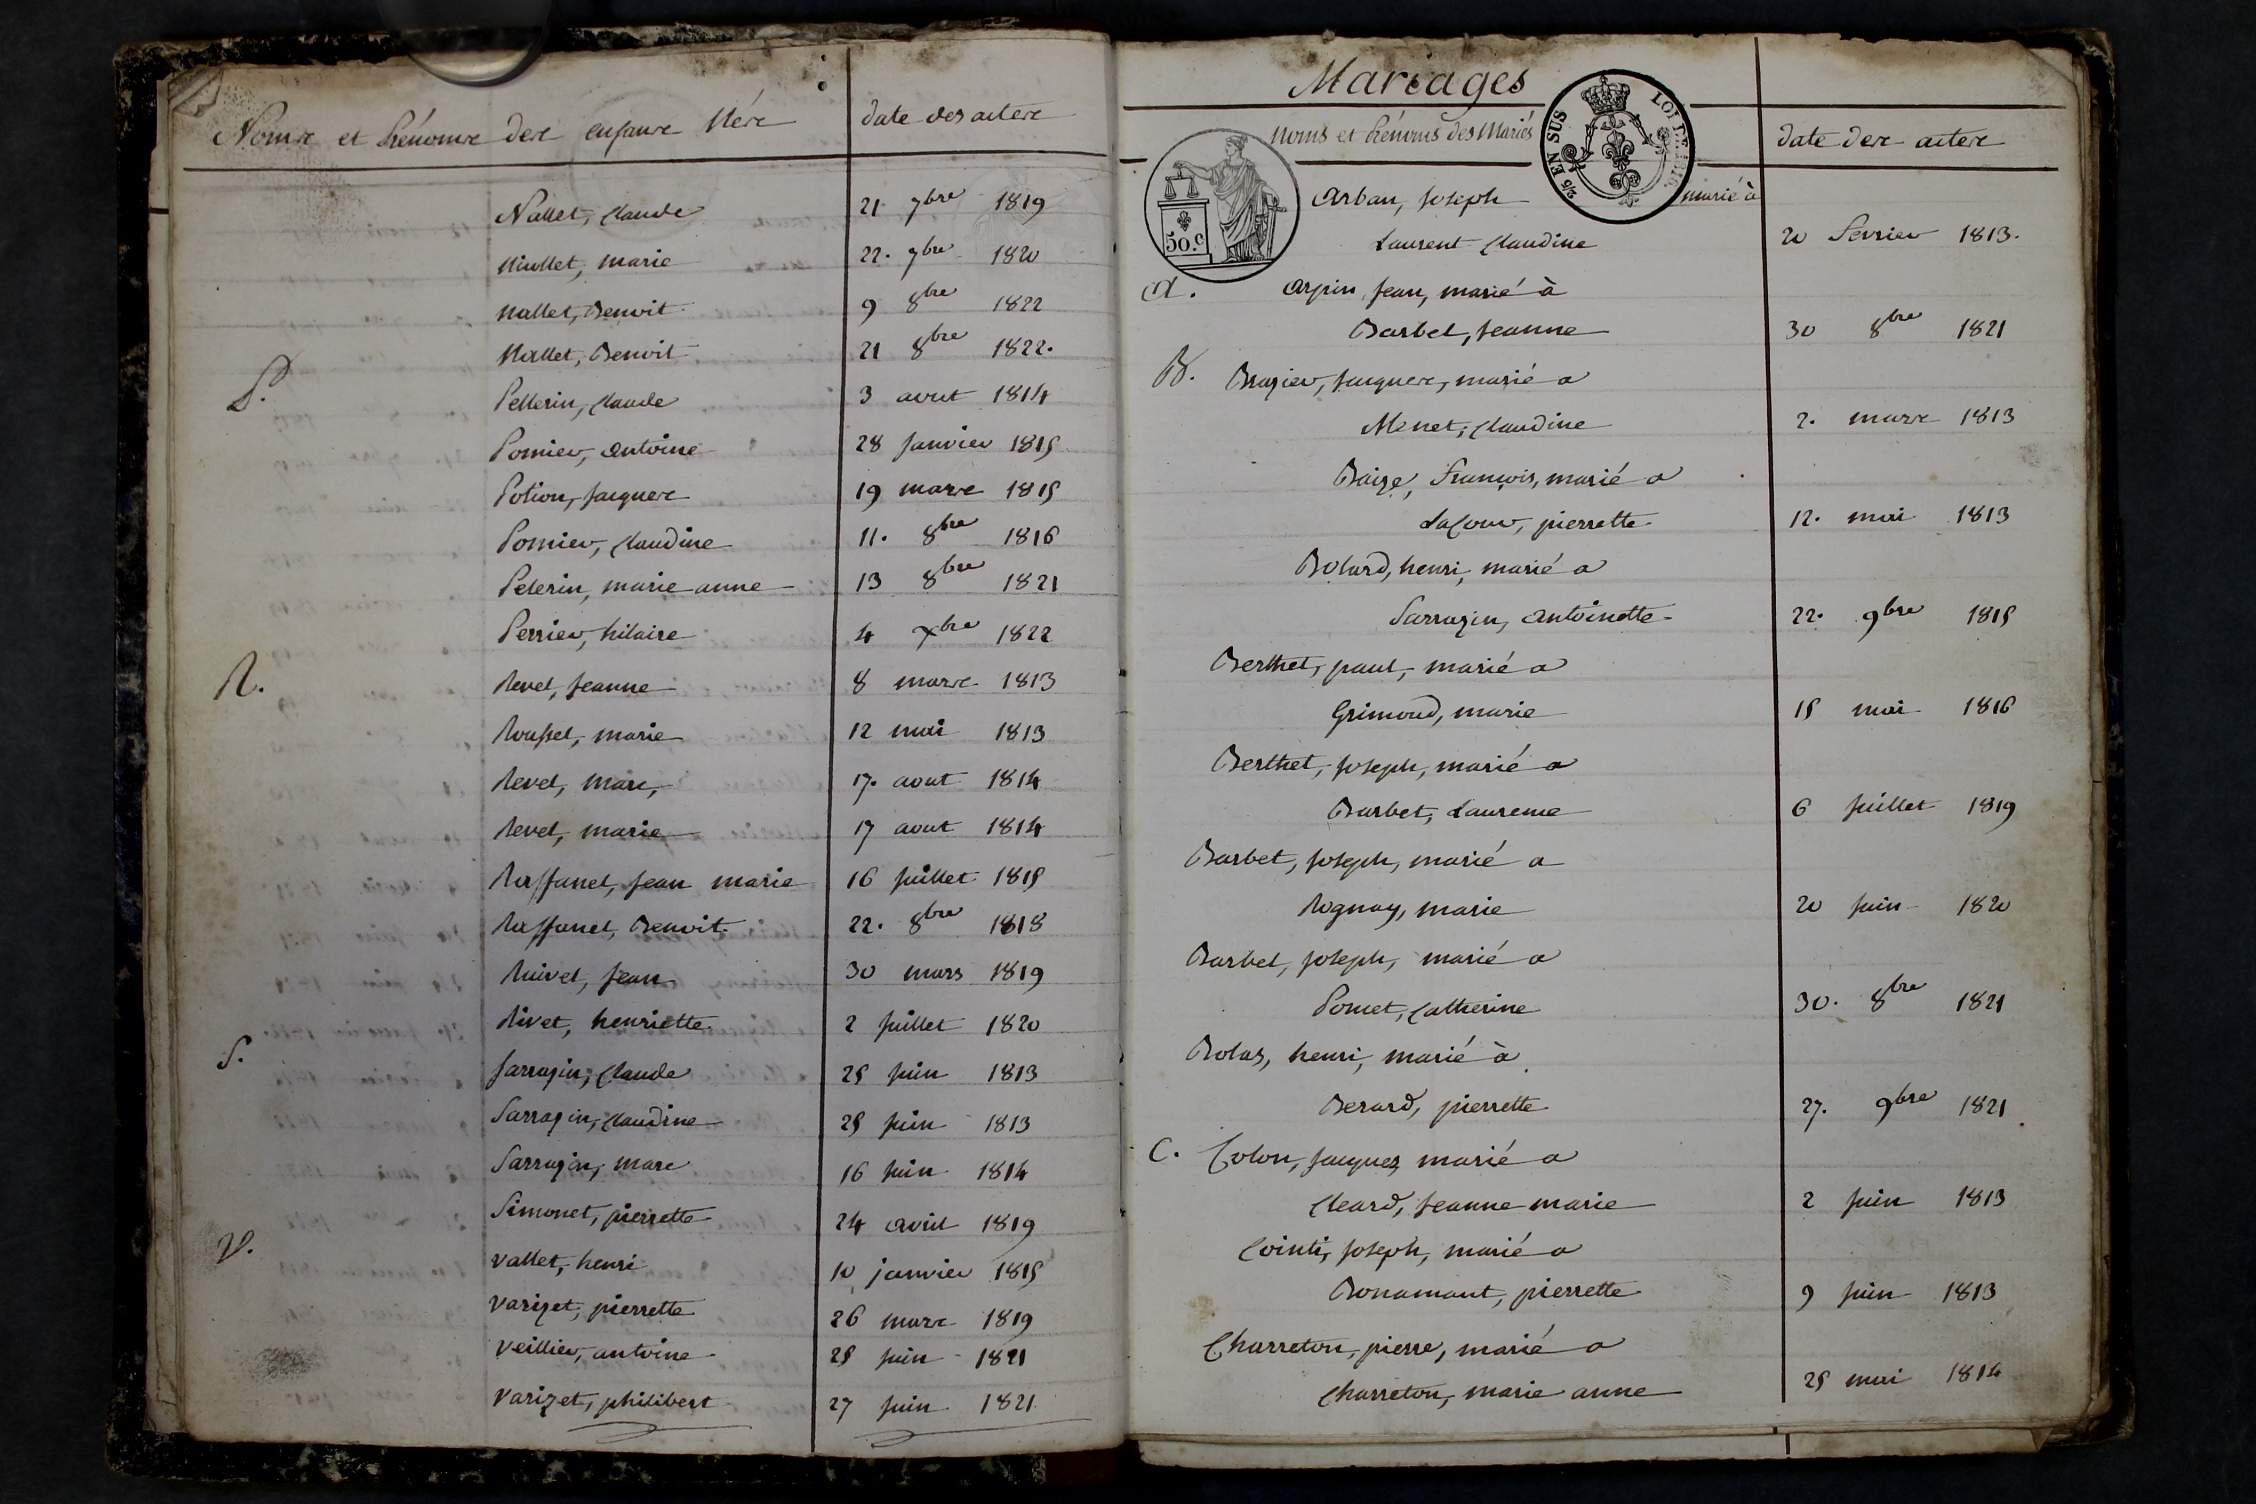 Noms et Prénoms des enfans Nés
date des actes
Nallet, Claude 21 7bre 1819
Niollet, marie 22. 7bre 1820
Nallet, Benoit 9 8bre 1822
Nallet, Benoit 21 8bre 1822.
P.
Pellerin, Claude 3 aout 1814
Pomier, antoine 28 Janvier 1815
Potion, Jacques 19 mars 1815
Pomier, Claudine 11. 8bre 1816
Pelerin, marie anne 13 8bre 1821
Perrier, hilaire 4 Xbre 1822
R.
Revel, Jeanne 8 mars 1813
Rousset, marie 12 mai 1813
Revel, Marc, 17. aout 1814
Revel, marie 17 aout 1814
Raffanel, Jean marie 16 Juillet 1815
Raffanel, Benoit 22. 8bre 1818
Ruivet, Jean 30 mars 1819
Rivet, henriette 2 Juillet 1820
S.
Sarrazin, Claude 25 Juin 1813
Sarrazin, Claudine 25 Juin 1813
Sarrazin, marc 16 Juin 1814
Simonet, pierrette 24 avril 1819
V.
Vallet, henri 10 janvier 1815
Varizet, pierrette 26 mars 1819
Veillier, antoine 25 Juin 1821
Varizet, philibert 27 Juin 1821
Mariages
Noms et Prénoms des Mariés
date des actes
2/5 EN SUS
LOI DE 1816.
50.c
Arban, Joseph marié à
Laurent Claudine 20 Fevrier 1813.
A. Arpin, Jean, marié à
Barbet, Jeanne 30 8bre 1821
B. Brazier, Jacques, marié a
Menet, Claudine 2. mars 1813
Baize, François, marié a
Lacour, pierrette 12. mai 1813
Bolard, henri, marié a
Sarrazin, Antoinette 22. 9bre 1815
Berthet, paul, marié a
Grimond, marie 15 mai 1816
Berthet, Joseph, marié a
Barbet, Laurence 6 Juillet 1819
Barbet, Joseph, marié a
Rognay, marie 20 Juin 1820
Barbet, Joseph, marié a
Pomet, Catherine 30. 8bre 1821
Bolas, henri, marié à
Berard, pierrette 27. 9bre 1821
C. Colon, Jacques marié a
Cleard, Jeanne marie 2 Juin 1813
Cointi, Joseph, marié a
Bonamant, pierrette 9 Juin 1813
Charreton, pierre, marié a
Charreton, marie anne 25 mai 1814